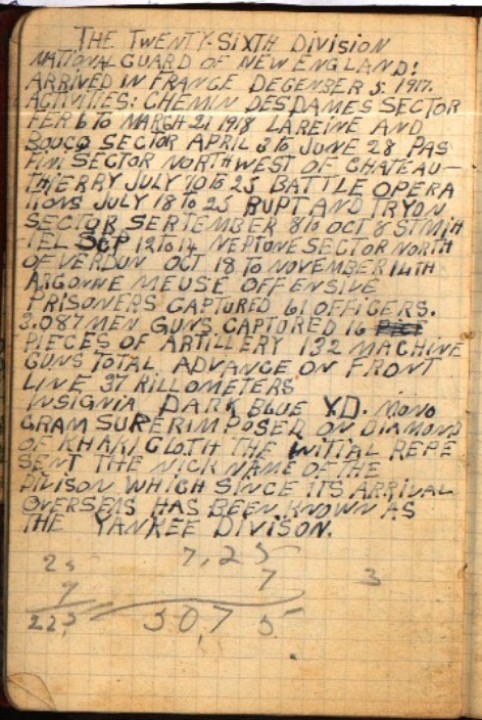 THE TWENTY-SIXTH DIVISION
NATIONAL GUARD OF NEW ENGLAND!
ARRIVED IN FRANCE DEGENBER 5. 1917.
ACTIVITIES: CHEMIN DES DAMES SECTOR
FER 6 TO MARCH 21 1918 LAREINE AND
BOUCQ SECTOR APRIL 3 TO JUNE 28 PAS
FINI SECTOR NORTHWEST OF CHATEAU-
THIERRY JULY 10 TO 25 BATTLE OPERA
TIONS JULY 18 TO 25 RUPT AND TRYON
SECTOR SERTEMBER 8 TO OCT 8 ST MIH
TEL SEP 12 TO 14 NEPTONE SECTOR NORTH
OF VERDUN OCT 18 TO NOVEMBER 14TH
ARGONNE MEUSE OFFENSIVE
PRISONERS CAPTURED 61 OFFICERS.
3.087 MEN GUNS CAPTURED 16
PIECES OF ARTILLERY 132 MACHINE
GUNS TOTAL ADVANCE ON FRONT
LINE 37 KILLOMETERS
INSIGNIA DARK BLUE Y.D. MONO
GRAM SUPERIMPOSED ON DIAMOND
OF KHAKI CLOTH THE INITIAL REPE
SENT THE NICK NAME OF THE
DIVISON WHICH SINCE ITS ARRIVAL
OVERSEAS HAS BEEN KNOWN AS
THE YANKEE DIVISON.
25 7,25
9 7 3
225 50,75